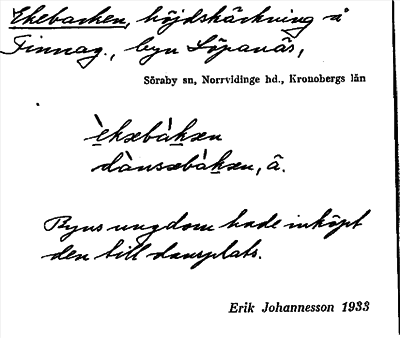 Ekebacken, höjdsträckning å
Finnag., byn Löpanäs,
Söraby sn, Norrvidinge hd., Kronobergs län
èkæbàkæn
dànsæbàkæn, â.
Byns ungdom hade inköpt
den till dansplats.
Erik Johannesson 1933